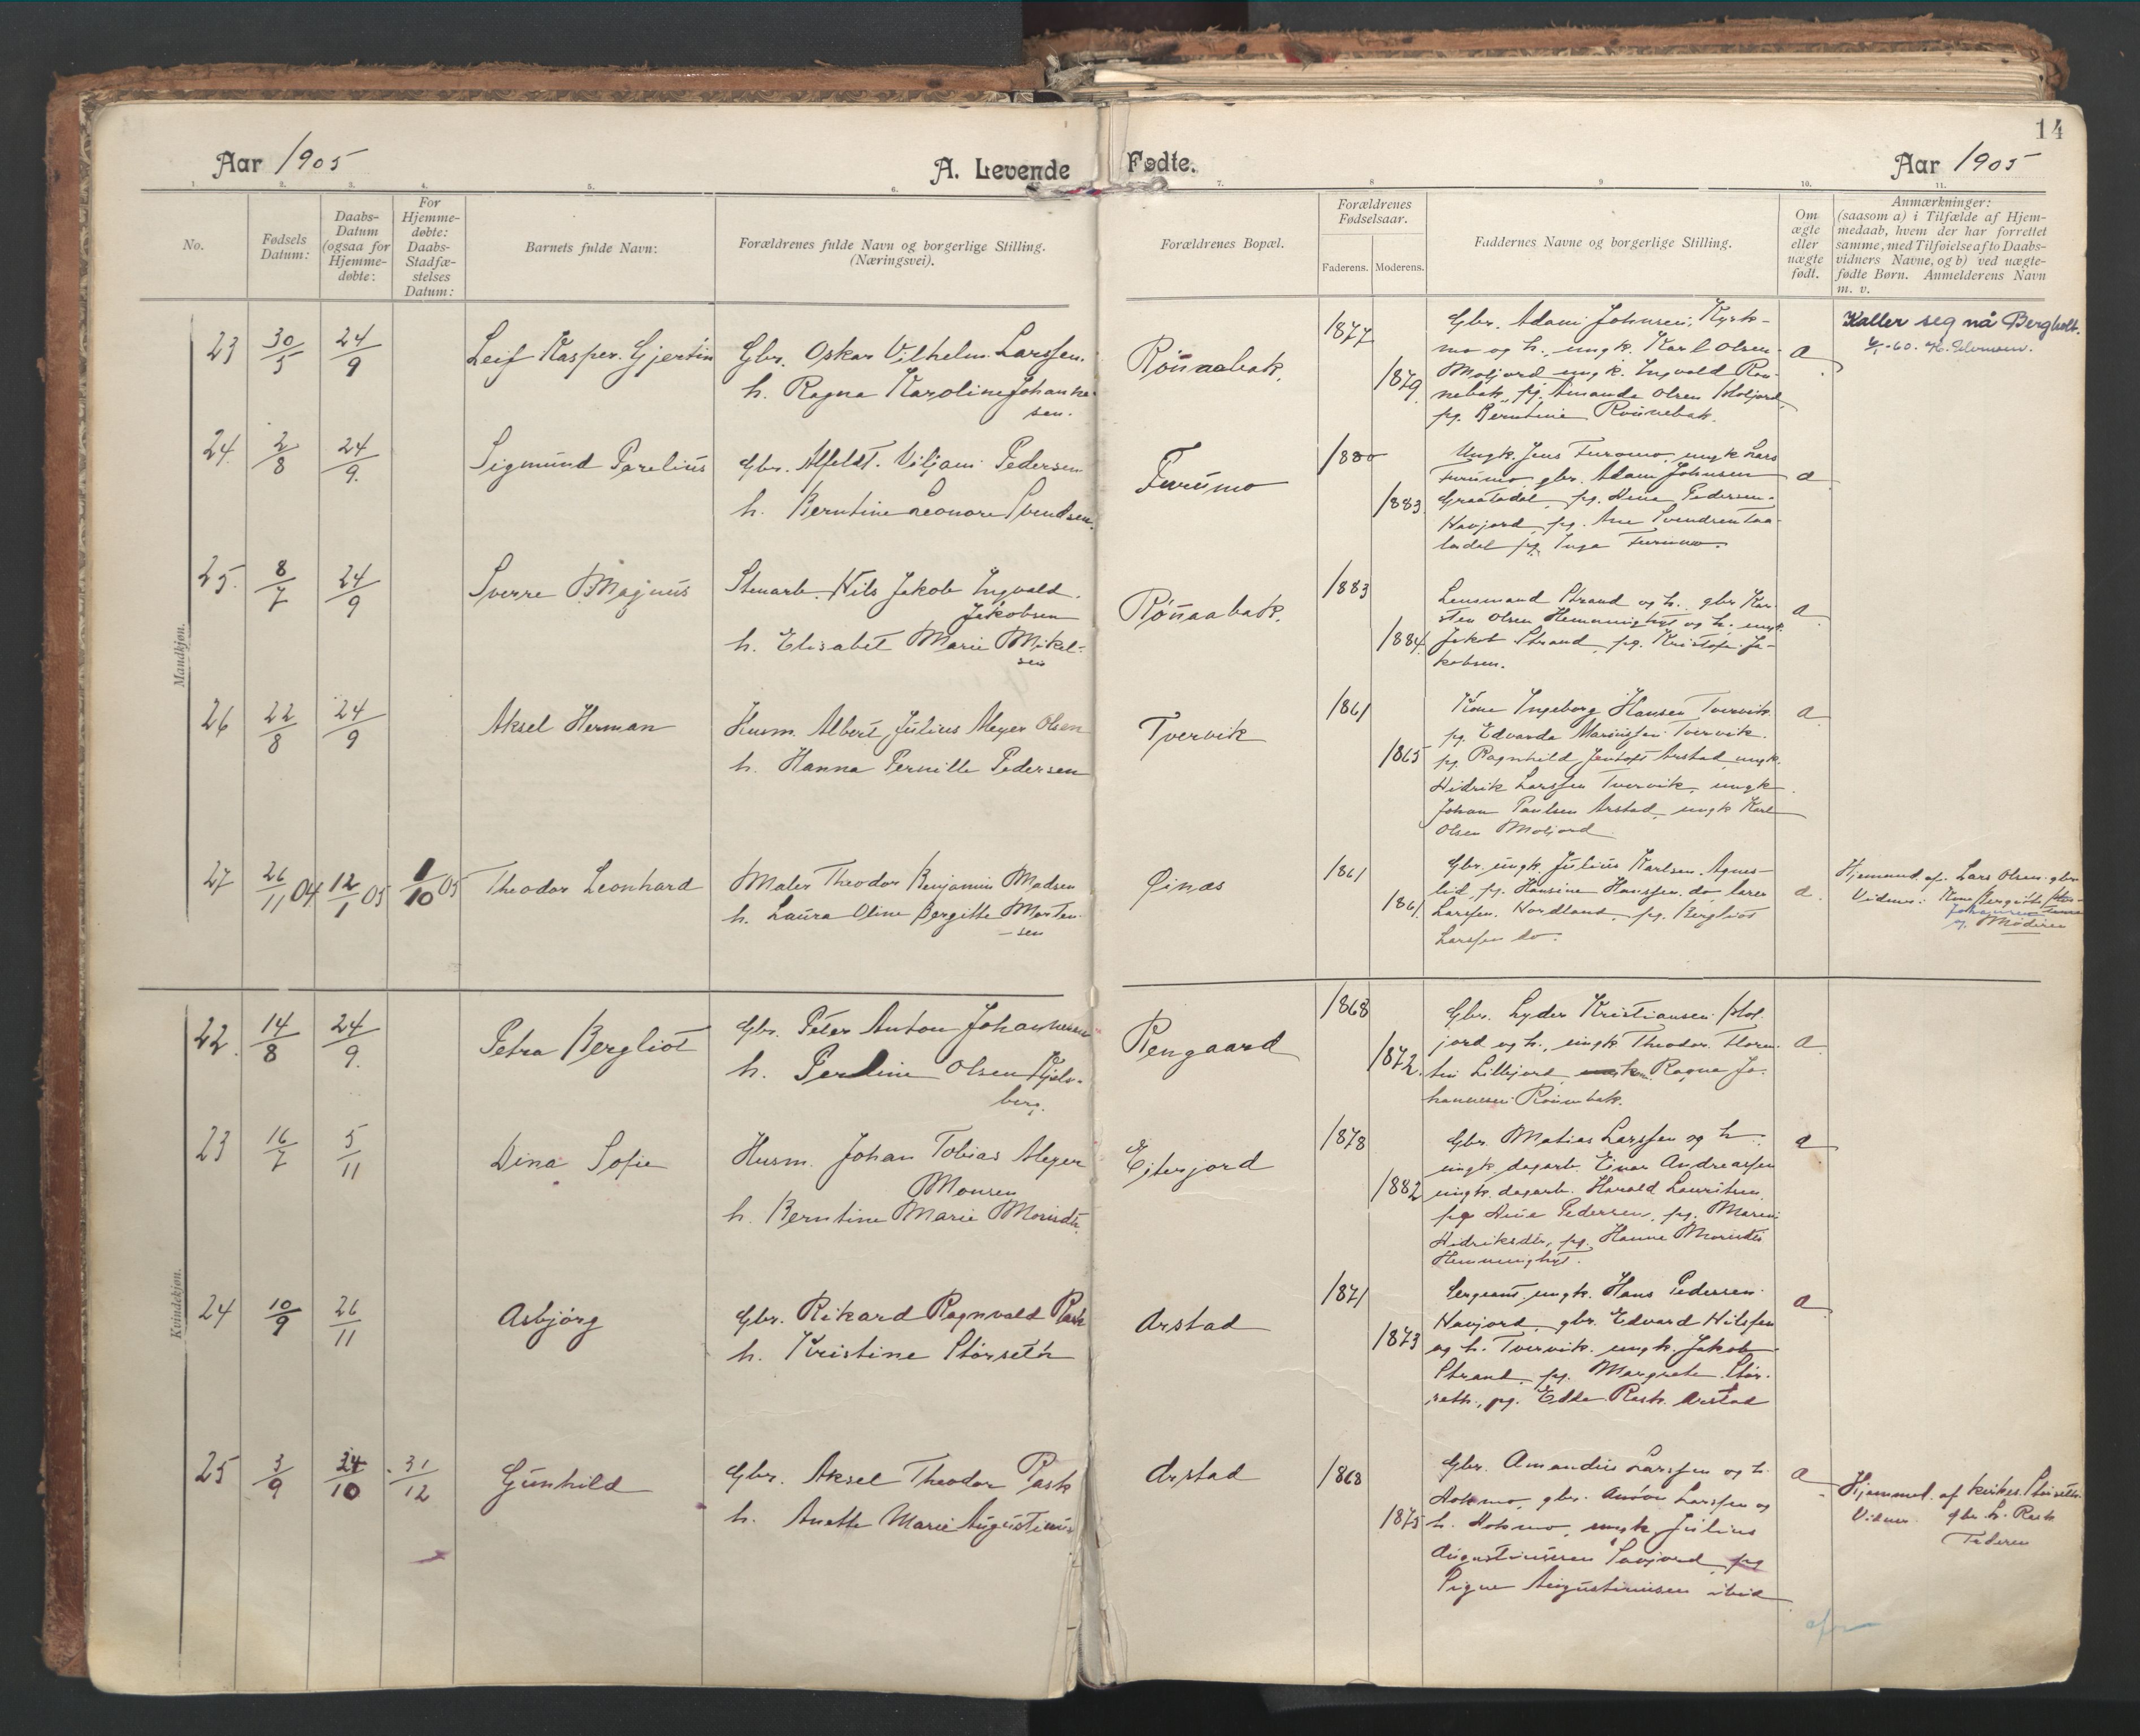 14
Aar 1905
A. Levende Fødte.
Aar 1905
1. 2. 3. 4. 5. 6. 7. 8 9 10. 11.
No.
Fødsels Datum:
Daabs-
Datum
(ogsaa for
Hjemme-
døbte:
For
Hjemme-
døbte:
Daabs-
Stadfæ-
stelses
Datum:
Barnets fulde Navn:
Forældrenes fulde Navn og borgerlige Stilling.
(Næringsvei).
Forældrenes Bopæl.
Forældrenes
Fødselsaar.
Faderens. Moderens.
Faddernes Navne og borgerlige Stilling.
Om
ægte
eller
uægte
født.
Anmærkninger:
(saasom a) i Tilfælde af Hjem-
medaab, hvem der har forrettet
samme, med Tilføielse af to Daabs-
vidners Navne, og b) ved uægte-
fødte Børn. Anmelderens Navn
m. v.
Mandkjøn.
23 30/5 24/9 Leif Kasper Gjertin
Gbr. Oskar Vilhelm Larssen.
h. Ragna Karoline Johanne-
sen.
Rönnabak.
1877
1879
Gbr. Adam Johnsen, Kyrk-
mo og h., ungk. Karl Olsen
Moljord ungk. Ingvald Rön-
nebak, pg. Amanda Olsen Moljord,
pg. Berntine Rönnebak.
a
Kaller seg nå Bergholt.
24. 2/8 24/9. Sigmund Parelius
Gbr. Alfeldt. Viljam Pedersen
h. Berntine Leonore Svendsen.
Furumo
1880
1883
Ungk. Jens Furomo, ungk Lars
Furumo, gbr. Adam Johnsen
Graatadal, pg. Pedersen
pg. Ane Svendsen Graa-
tadal pg. Inga Furumo.
a
25. 8/7 24/9 Sverre Magnus
Stenarb. Nils Jakob Ingvald
Jakobsen
h. Elisabet Marie Mikel-
sen
Rönnabak.
1883
1884
Lensmand Strand og h. gbr. Kar-
sten Olsen Hemminghyt og h. ungk.
Jakob Strand, pg. Kristofa Ja-
kobsen.
a
26 22/8 24/9 Aksel Herman
Husm. Albert Julius Meyer Olsen
h. Hanna Pernille Pedersen
Tvervik
1861
1865
Kone Ingeborg Hansen Tvervik
pg. Edvarda Mariussen Tvervik.
pg. Ragnhild Jentoft Arstad, ungk.
Hidrik Larssen Tvervik, ungk
Johan Paulsen Arstad, ungk Karl
Olsen Moljord
a
27 26/11 04 12/1 05 1/10 05 Theodor Leonhard
Maler Theodor Benjamin Madsen
h. Laura Oline Bergitte Morten-
sen
1861
1861.
Gbr. ungk. Julius Karlsen. Agnes-
lid, pg. Hansine Hanssen, do, lærer
Larssen. Nordland, pg. Bergliot
Larssen do.
a.
Hjemmed. af. Lars Olsen gbr.
Vidner: Kone
Johansen
og Moderen
Kvindekjøn.
22. 14/8 24/9. Petra Bergliot
Gbr. Peter Anton Johannesen
h. Perline Olsen
berg.
Rengaard
1868
1872.
Gbr. Lyder Kristiansen Mol-
jord og h., ungk. Theodor Floren-
tin Lillejord, Ragna Jo-
hannesen Rönnebak.
a
23 16/7 5/11 Dina Sofie
Husm. Johan Tobias Meyer
Monsen
h. Berntine Marie Morisdtr.
Eiterjord
1878
1882
Gbr. Matias Larssen og h
ungk. dagarb. Einar Andreassen
ungk. dagarb. Harald Lauritsen
pg Pedersen, pg. Maren
Hidriksdtr, pg. Hanne Morisdtr
Hemminghyt.
a
24 10/9 26/11 Asbjørg
Gbr. Rikard Ragnvald Rask
h. Kristine Störseth
Arstad
1871
1873
Sergeant, ungk. Hans Pedersen
gbr. Edvard Nilssen
og h. Tvervik. ungk. Jakob
Strand, pg. Margrete Stör-
seth, pg. Edda Rask. Arstad
a
25 3/9 24/10 31/12 Gunhild
Gbr. Aksel Theodor Rask
h. Anette Marie Augustinus
Arstad
1868
1875
Gbr. Amandus Larssen og h.
gbr. Larssen og
h. ungk. Julius
Augustinussen Savjord, pg
Signe Augustinusen ibid
a
Hjemmed. af kirkes. Störseth.
Vidner gbr. L. Rask
Faderen